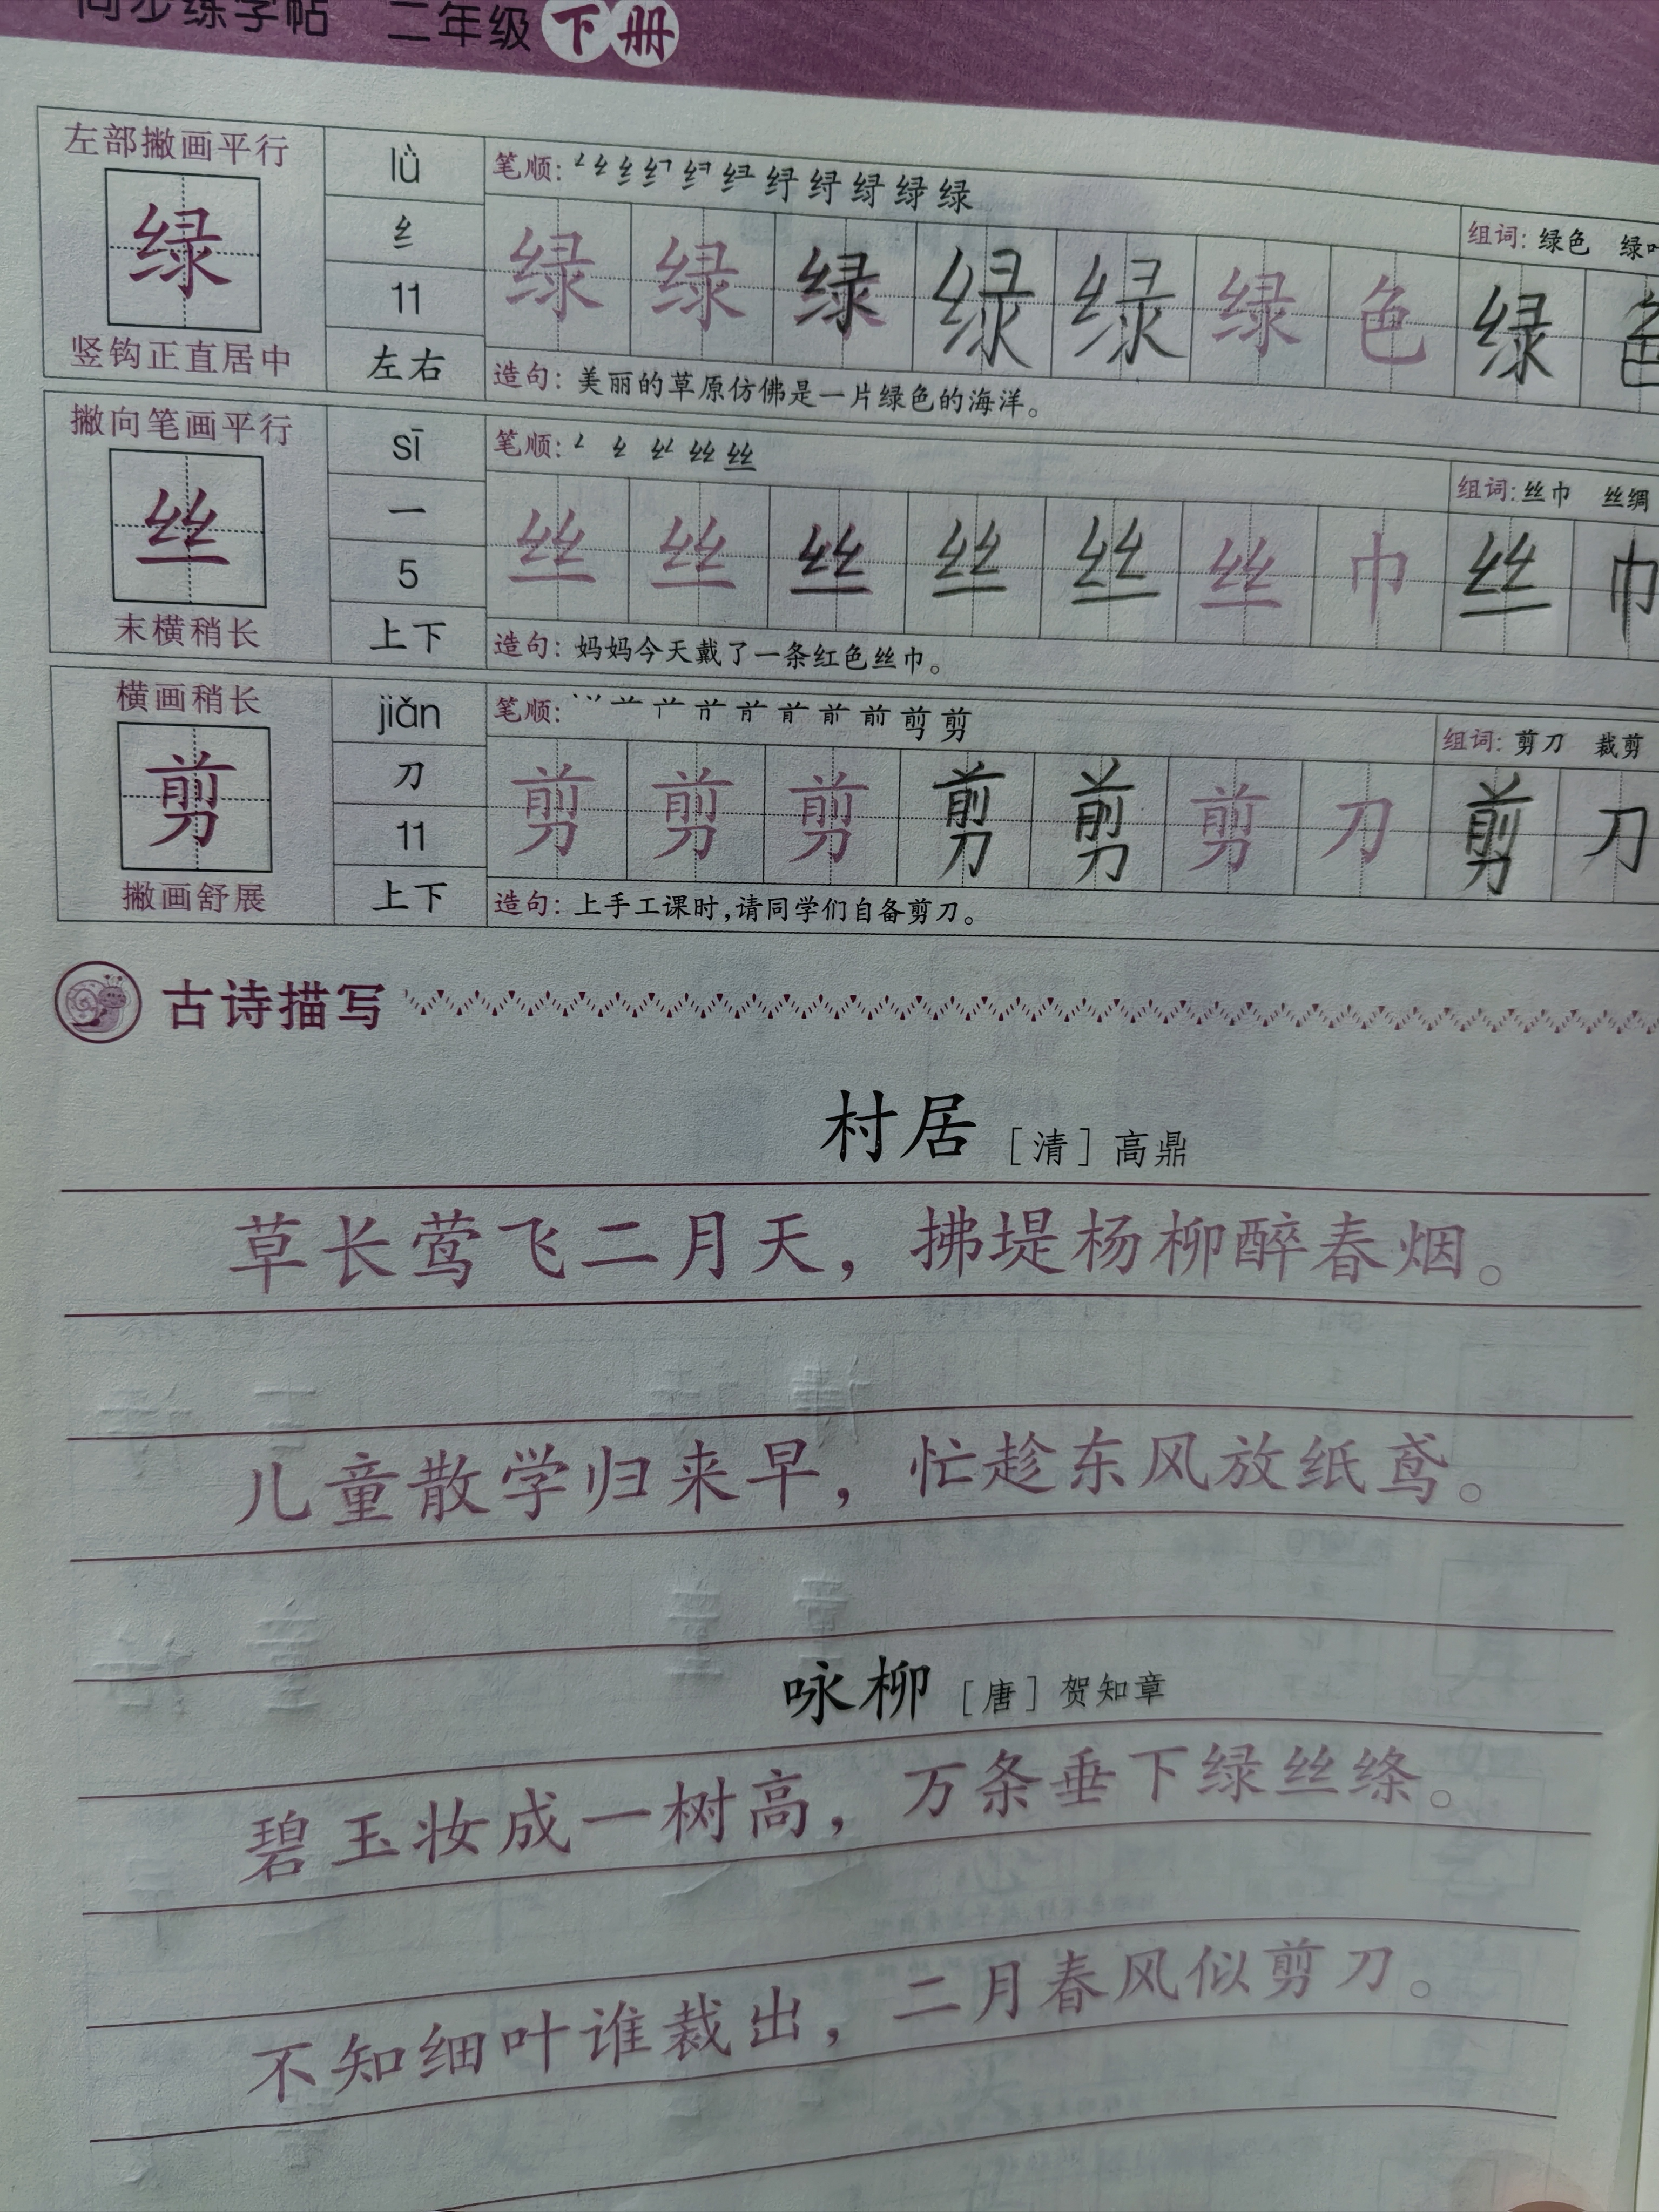 同步练字帖 二年级 下册
左部撇画平行
绿
竖钩正直居中
lǜ
纟
11
左右
笔顺:
绿
组词: 绿色
绿 绿 绿 绿 绿 绿 色 绿 色
造句: 美丽的草原仿佛是一片绿色的海洋。
撇向笔画平行
丝
末横稍长
sī
一
5
上下
笔顺:
丝
组词: 丝巾 丝绸
丝 丝 丝 丝 丝 丝 巾 丝 巾
造句: 妈妈今天戴了一条红色丝巾。
横画稍长
剪
撇画舒展
jiǎn
刀
11
上下
笔顺:
前 剪 剪
组词: 剪刀 裁剪
剪 剪 剪 剪 剪 剪 刀 剪 刀
造句: 上手工课时,请同学们自备剪刀。
古诗描写
村居 [清] 高鼎
草长莺飞二月天，拂堤杨柳醉春烟。
儿童散学归来早，忙趁东风放纸鸢。
咏柳 [唐] 贺知章
碧玉妆成一树高，万条垂下绿丝绦。
不知细叶谁裁出，二月春风似剪刀。